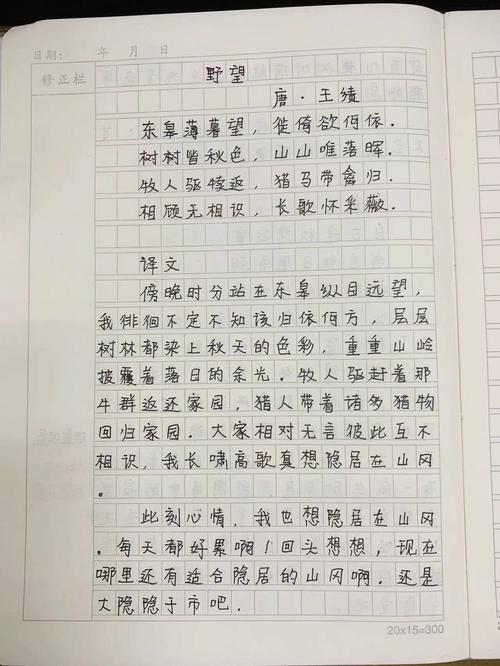 日期: 年 月 日
修正栏
野望
唐·王绩
东皋薄暮望,徙倚欲何依.
树树皆秋色,山山唯落晖.
牧人驱犊返,猎马带禽归.
相顾无相识,长歌怀采薇.
译文
傍晚时分站在东皋纵目远望,
我徘徊不定不知该归依何方,层层
树林都染上秋天的色彩,重重山岭
披覆着落日的余光.牧人驱赶着那
牛群返还家园,猎人带着诸多猎物
回归家园.大家相对无言彼此互不
相识,我长啸高歌真想隐居在山冈
.
此刻心情,我也想隐居在山冈
.每天都好累啊!回头想想,现在
哪里还有适合隐居的山冈啊.还是
大隐隐于市吧.
20x15=300